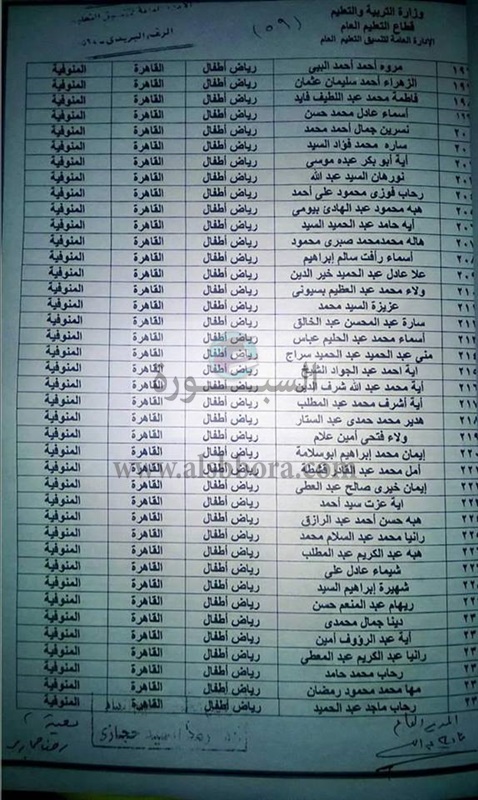 وزارة التربية والتعليم
قطاع التعليم العام
الإدارة العامة لتنسيق التعليم العام
(٥٩)
مروه أحمد أحمد الببي رياض أطفال القاهرة المنوفية
الزهراء أحمد سليمان عثمان رياض أطفال القاهرة المنوفية
فاطمة محمد عبد اللطيف فايد رياض أطفال القاهرة المنوفية
أسماء عادل محمد حسن رياض أطفال القاهرة المنوفية
نسرين جمال أحمد محمد رياض أطفال القاهرة المنوفية
ساره محمد فؤاد السيد رياض أطفال القاهرة المنوفية
آية أبو بكر عبده موسى رياض أطفال القاهرة المنوفية
نورهان السيد عبد الله رياض أطفال القاهرة المنوفية
رحاب فوزى محمود على أحمد رياض أطفال القاهرة المنوفية
هبه محمود عبد الهادى بيومى رياض أطفال القاهرة المنوفية
آيه حامد عبد الحميد السيد رياض أطفال القاهرة المنوفية
هاله محمدمحمد صبرى محمود رياض أطفال القاهرة المنوفية
أسماء رأفت سالم إبراهيم رياض أطفال القاهرة المنوفية
٢٠٩ علا عادل عبد الحميد خير الدين رياض أطفال القاهرة المنوفية
٢١٠ ولاء محمد عبد العظيم بسيونى رياض أطفال القاهرة المنوفية
عزيزة السيد محمد رياض أطفال القاهرة المنوفية
سارة عبد المحسن عبد الخالق رياض أطفال القاهرة المنوفية
أسماء محمد عبد الحليم عباس رياض أطفال القاهرة المنوفية
٢١٤ منى عبد الحميد عبد الحميد سراج رياض أطفال القاهرة المنوفية
٢١٥ آية احمد عبد الجواد رياض أطفال القاهرة المنوفية
٢١٦ آية محمد عبد الله شرف الدين رياض أطفال القاهرة المنوفية
آية أشرف محمد عبد المطلب رياض أطفال القاهرة المنوفية
٢١٨ هدير محمد حمدى عبد الستار رياض أطفال القاهرة المنوفية
٢١٩ ولاء فتحى أمين علام رياض أطفال القاهرة المنوفية
٢٢٠ إيمان محمد إبراهيم ابوسلامة رياض أطفال القاهرة المنوفية
أمل محمد عبد القادر قشطة رياض أطفال القاهرة المنوفية
إيمان خيرى صالح عبد العطى رياض أطفال القاهرة المنوفية
آية عزت سيد أحمد رياض أطفال القاهرة المنوفية
هبه حسن أحمد عبد الرازق رياض أطفال القاهرة المنوفية
رانيا محمد عبد السلام محمد رياض أطفال القاهرة المنوفية
هبه عبد الكريم عبد المطلب رياض أطفال القاهرة المنوفية
شيماء عادل على رياض أطفال القاهرة المنوفية
شهيرة إبراهيم السيد رياض أطفال القاهرة المنوفية
ريهام عبد المنعم حسن رياض أطفال القاهرة المنوفية
دينا جمال محمدى رياض أطفال القاهرة المنوفية
آية عبد الرؤوف أمين رياض أطفال القاهرة المنوفية
رانيا عبد الكريم عبد المعطى رياض أطفال القاهرة المنوفية
رحاب محمد حامد رياض أطفال القاهرة المنوفية
مها محمد محمود رمضان رياض أطفال القاهرة المنوفية
رحاب ماجد عبد الحميد رياض أطفال القاهرة المنوفية
السبورة